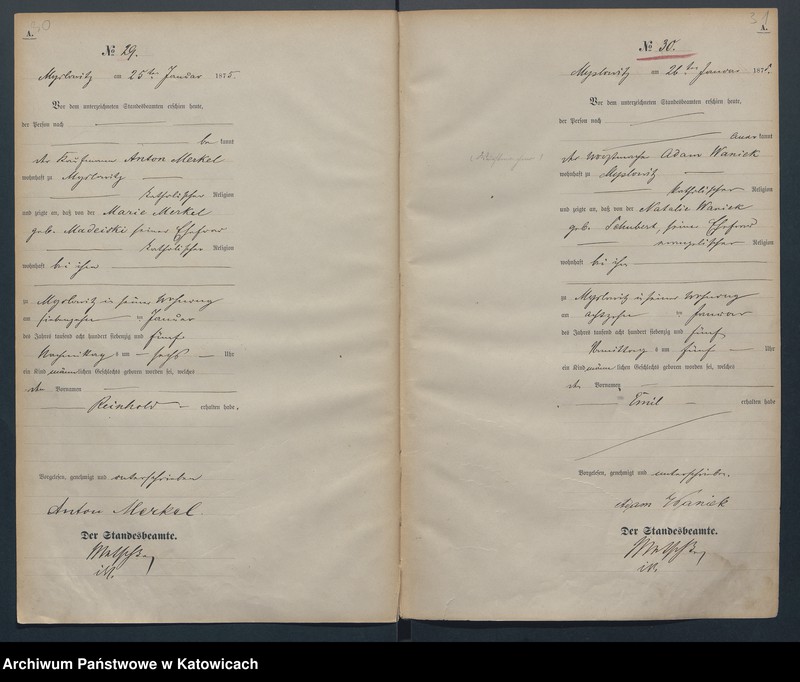 30
A.
№ 29.
Myslowitz am 25ten Januar 1875
Vor dem unterzeichneten Standesbeamten erschien heute,
der Person nach
be kannt
der Kaufmann Anton Merkel
wohnhaft zu Myslowitz
katholischer Religion
und zeigte an, daß von der Marie Merkel
geb. Madeiski seiner Ehefrau
katholischer Religion
wohnhaft bei ihm
zu Myslowitz in seiner Wohnung
am siebenzehn ten Januar
des Jahres tausend acht hundert siebenzig und fünf
Nachmittag s um sechs Uhr
ein Kind männlichen Geschlechts geboren worden sei, welches
den Vornamen
Reinhold erhalten habe.
Vorgelesen, genehmigt und unterschrieben
Anton Merkel.
Der Standesbeamte.
31
A.
№ 30.
Myslowitz am 26ten Januar 1875.
Vor dem unterzeichneten Standesbeamten erschien heute,
der Person nach
aner kannt
der Adam Waniek
wohnhaft zu Myslowitz
katholischer Religion
und zeigte an, daß von der Natalie Waniek
geb. Schubert, seiner Ehefrau
evangelischer Religion
wohnhaft bei ihm
zu Myslowitz in seiner Wohnung
am achtzehn ten Januar
des Jahres tausend acht hundert siebenzig und fünf
Vormittag s um fünf Uhr
ein Kind männlichen Geschlechts geboren worden sei, welches
den Vornamen
Emil erhalten habe
Vorgelesen, genehmigt und unterschrieben.
Adam Waniek
Der Standesbeamte.
Archiwum Państwowe w Katowicach